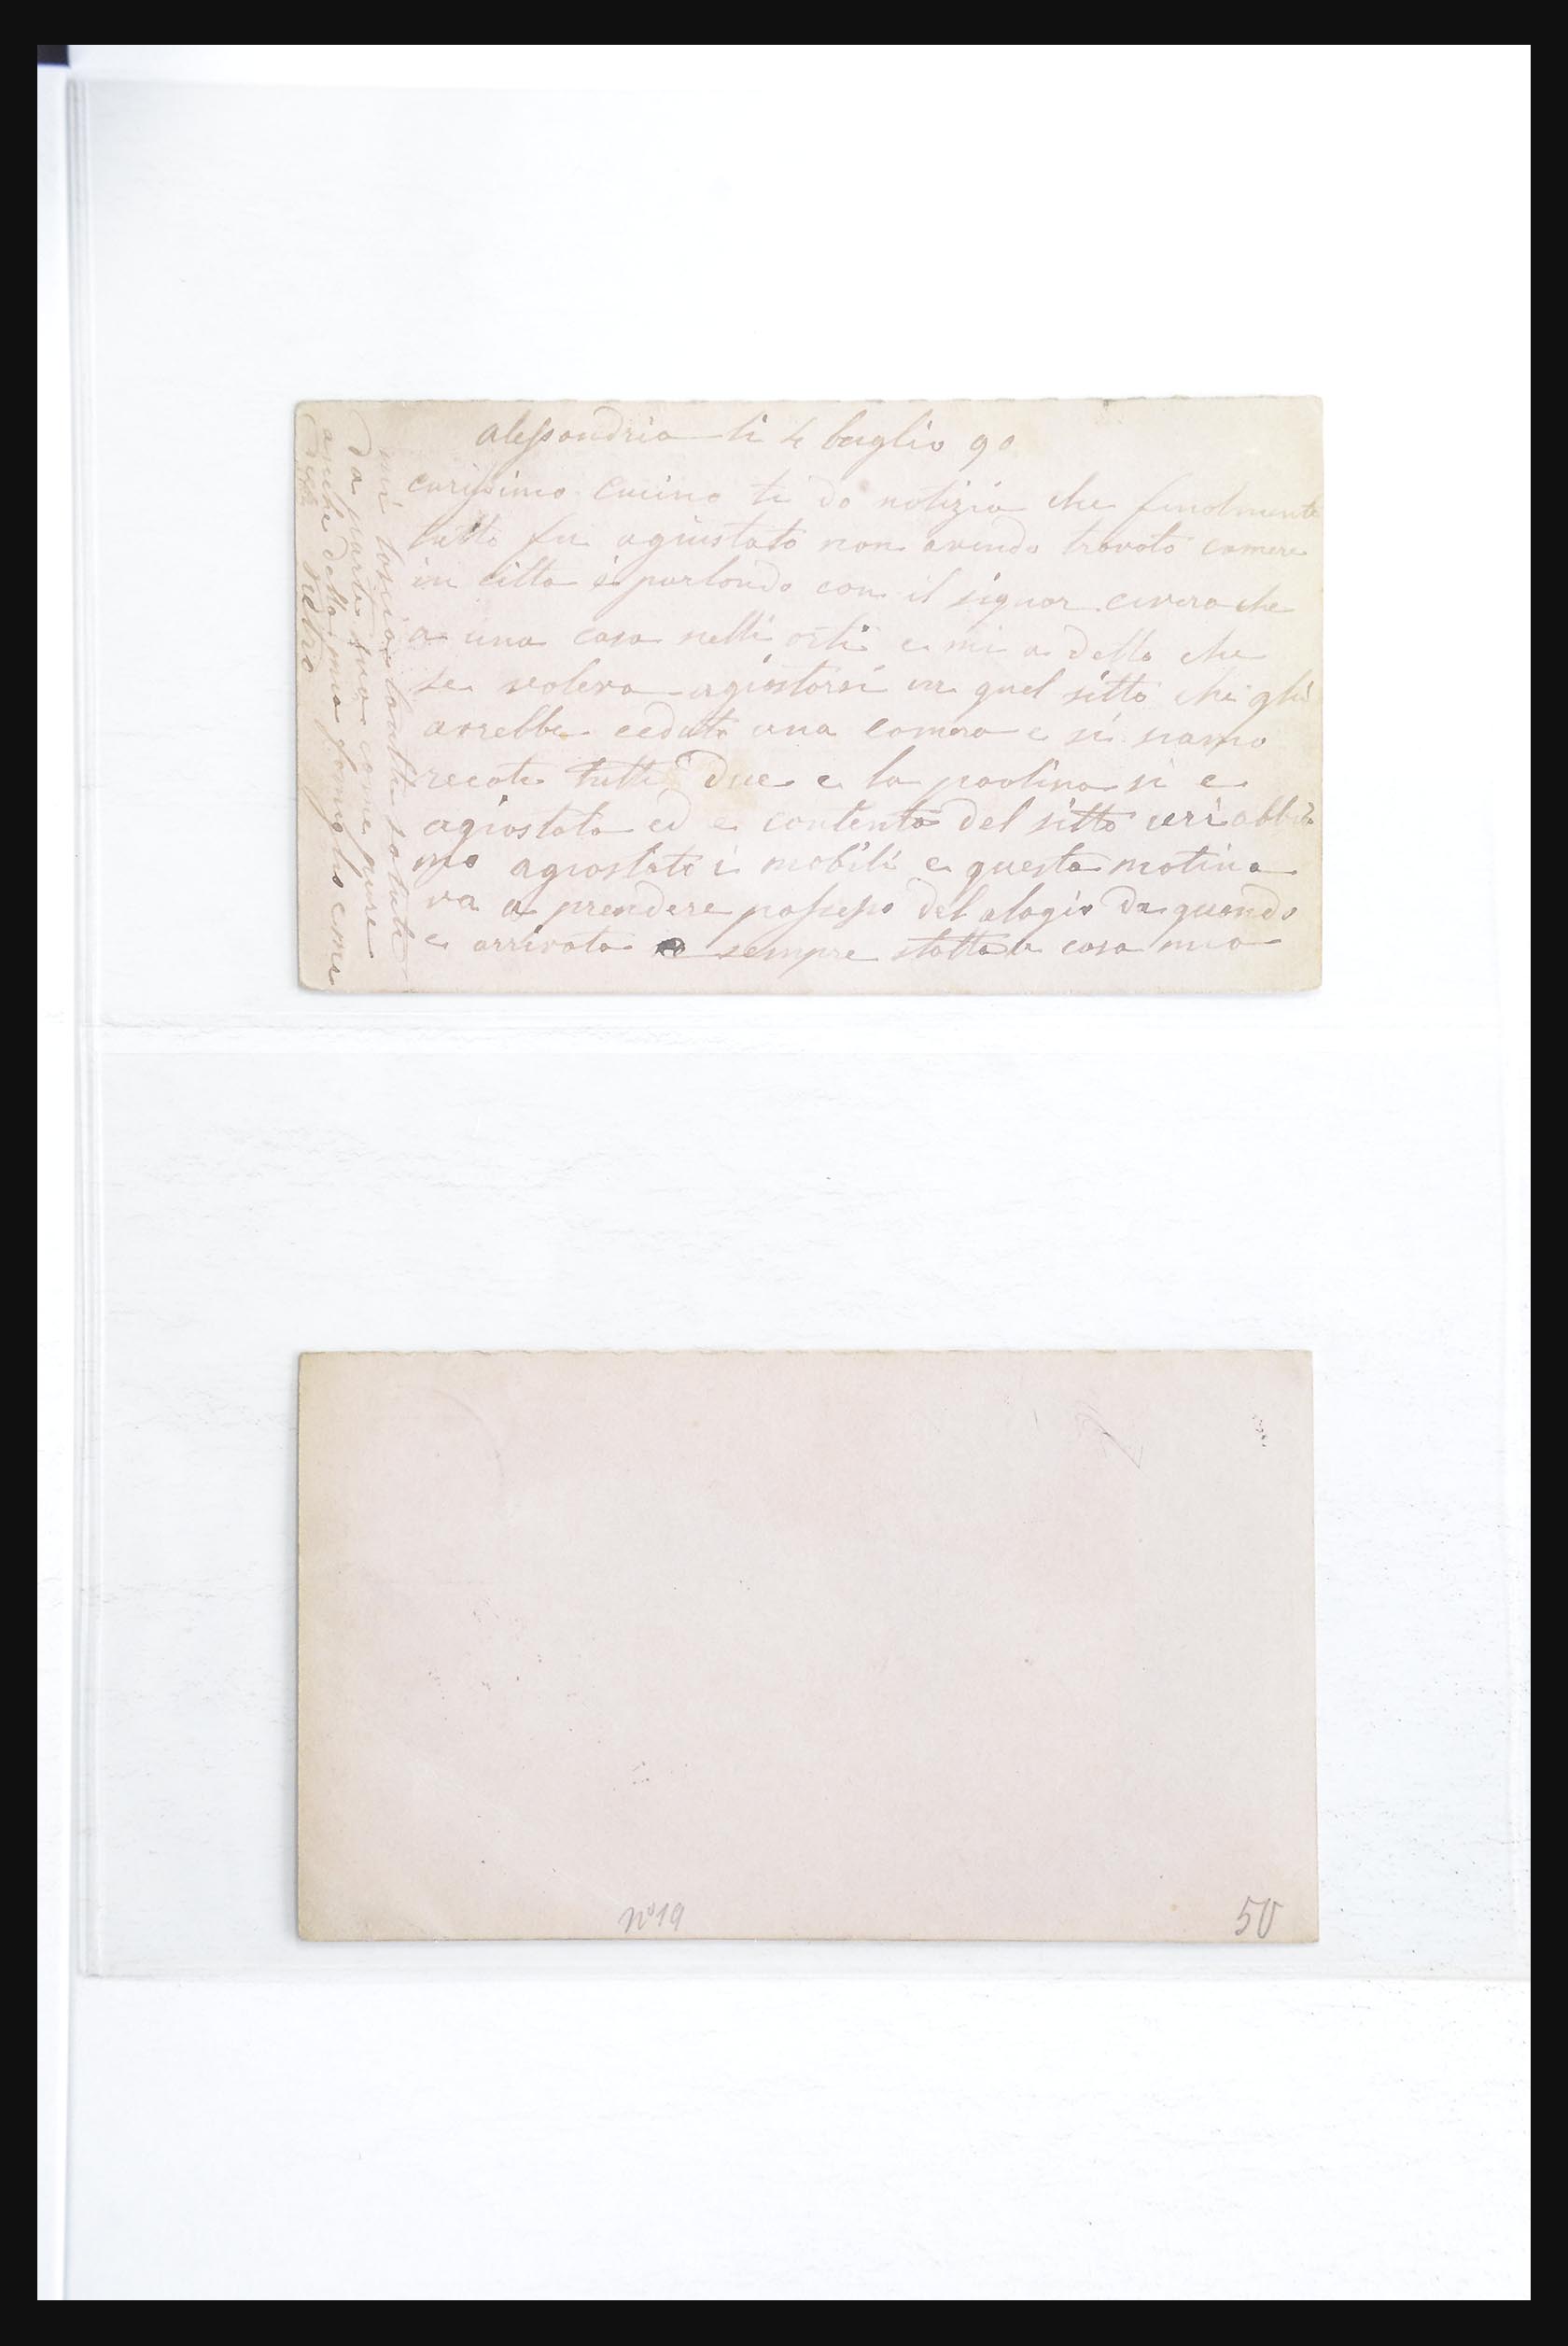 alessandria li 4 luglio 90
carissimo cucino ti do notizia che finalmente
tutto fu agiustato non avendo trovato camere
in citta è parlando con il signor civera che
a una casa nelli orti e mi a detto che
se voleva agiustarsi in quel sitto che gli
avrebbe ceduto una camera e si siamo
recati tutti due e la paolina si e
agiustata ed e contenta del sitto ieri abbia
mo agiustato i mobili e questa matina
va a prendere possesso del alogio da quando
e arrivata e sempre statta a casa mia
mi tanti saluti
da parte sua come pure
anche della mia famiglia e mi
dico Pietro
nº19
50